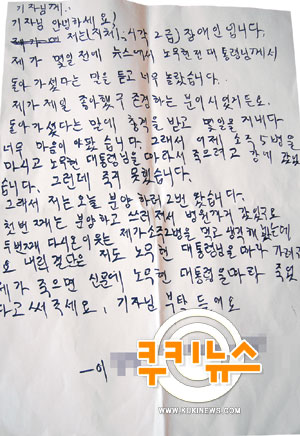 기자님께.
기자님 안녕하세요!
저는(지체1, 시각2급) 장애인 입니다.
제가 몇일전에 뉴스에서 노무현 전 대통령님께서
돌아가셨다는 말을 듣고 너무 놀랐습니다.
제가 제일 좋아했구 존경하는 분이시였거든요.
돌아가셨다는 말에 충격을 받고 몇일을 지내다
너무 마음이 아팠습니다. 그래서 어제 소주5병을
마시고 노무현 대통령님을 따라서 죽으려고 강에 갔었
습니다. 그런데 죽지 못했습니다.
그래서 저는 오늘 분양하러 2번 왔습니다.
첫번째는 분양하고 쓰러져서 병원까지 갔었구요
두번째 다시온 이웃는 제가 소주2병을 먹고 생각해 봤는데
요 내린 결단은 저도 노무현 대통령님을 따라 가려구
제가 죽으면 신문에 노무현 대통령을 따라 죽었
다고 써주세요, 기자님 부탁드려요
-이
쿠키뉴스
WWW.KUKINEWS.COM